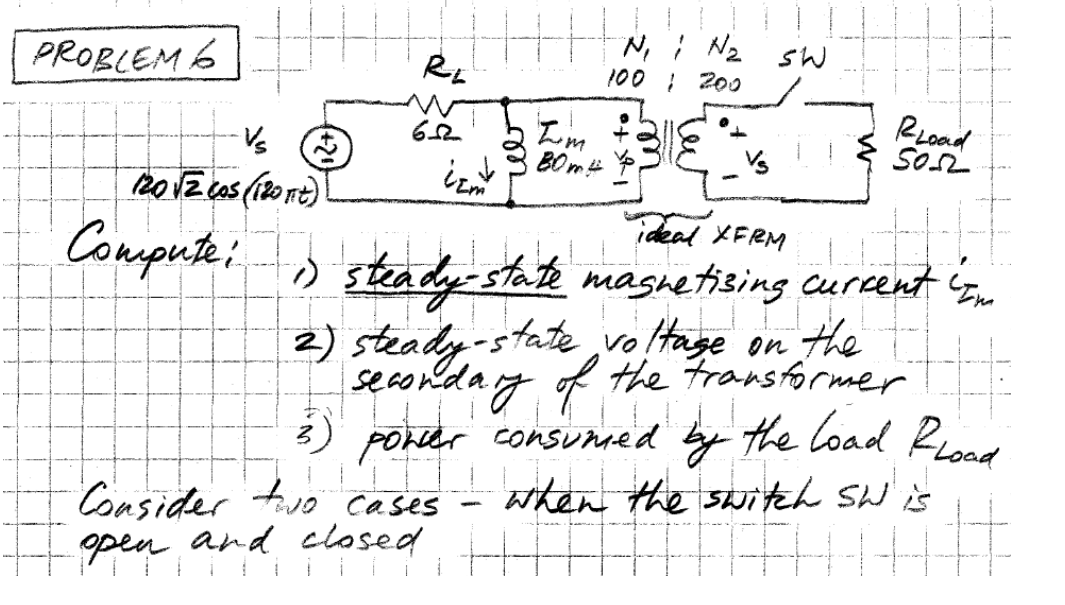 PROBLEM 6
N₁ : N₂
100 : 200
SW
R_L
6Ω
V_s
120√2 cos(120πt)
i_Im
I_m
80mH
+
V_P
-
+
V_s
-
R_Load
50Ω
ideal XFRM
Compute:
1) steady-state magnetizing current i_Im
2) steady-state voltage on the
secondary of the transformer
3) power consumed by the load R_Load
Consider two cases - when the switch SW is
open and closed